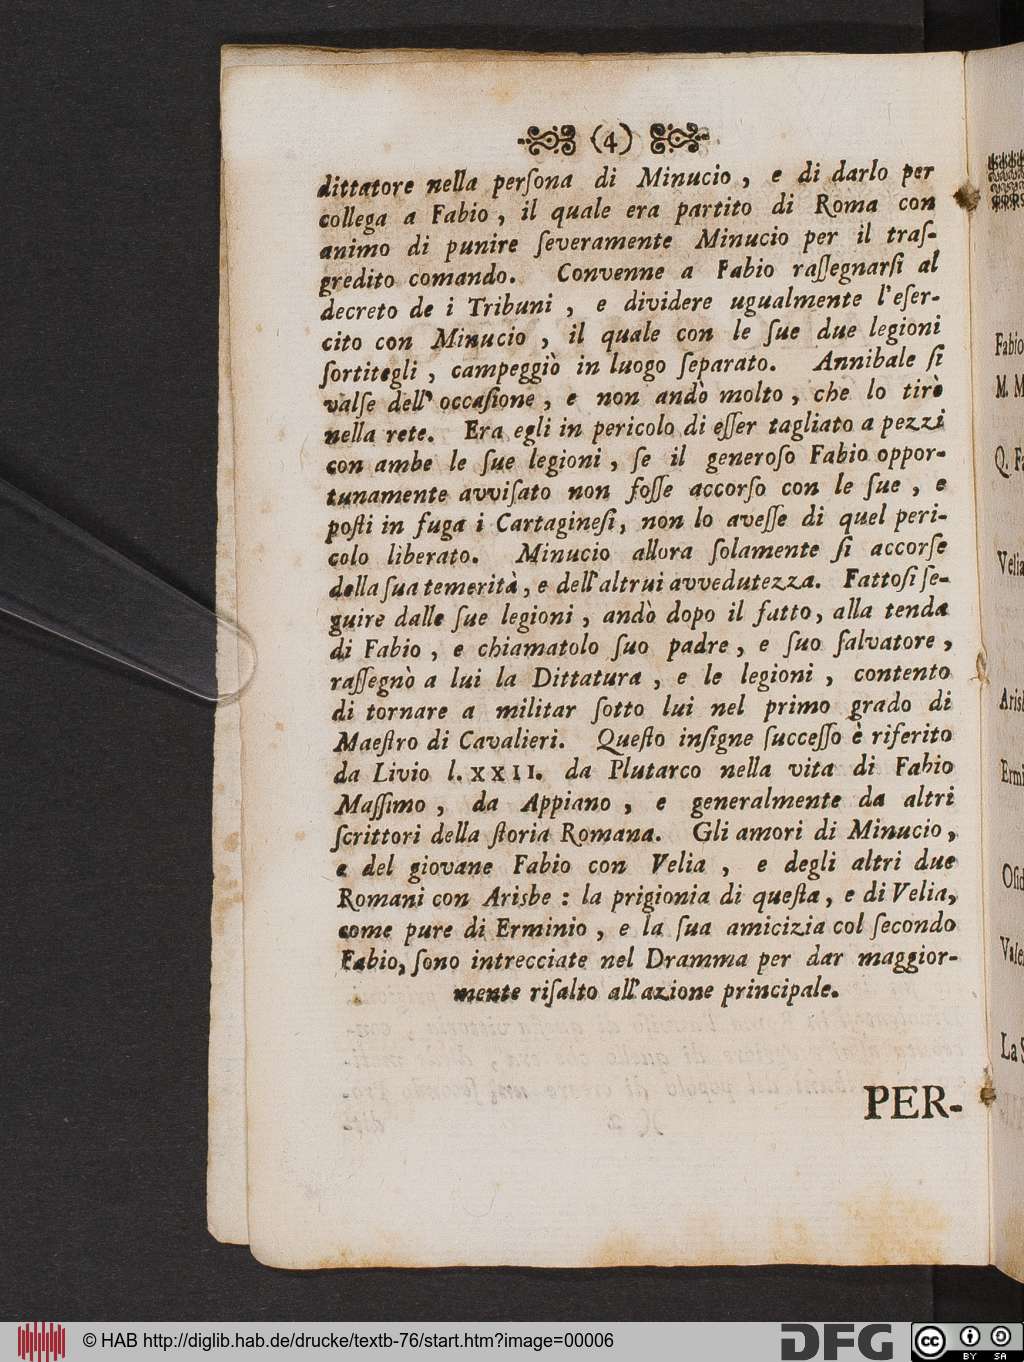 (4)
dittatore nella perſona di Minucio, e di darlo per
collega a Fabio, il quale era partito di Roma con
animo di punire ſeveramente Minucio per il traſ-
gredito comando. Convenne a Fabio raſſegnarſi al
decreto de i Tribuni, e dividere ugualmente l'eſer-
cito con Minucio, il quale con le ſue due legioni
ſortitegli, campeggiò in luogo ſeparato. Annibale ſi
valſe dell'occaſione, e non andò molto, che lo tirò
nella rete. Era egli in pericolo di eſſer tagliato a pezzi
con ambe le ſue legioni, ſe il generoſo Fabio oppor-
tunamente avviſato non foſſe accorſo con le ſue, e
poſti in fuga i Cartagineſi, non lo aveſſe di quel peri-
colo liberato. Minucio allora ſolamente ſi accorſe
della ſua temerità, e dell'altrui avvedutezza. Fattoſi ſe-
guire dalle ſue legioni, andò dopo il fatto, alla tenda
di Fabio, e chiamatolo ſuo padre, e ſuo ſalvatore,
raſſegnò a lui la Dittatura, e le legioni, contento
di tornare a militar ſotto lui nel primo grado di
Maeſtro di Cavalieri. Queſto inſigne ſucceſſo è riferito
da Livio l. XXII. da Plutarco nella vita di Fabio
Maſſimo, da Appiano, e generalmente da altri
ſcrittori della ſtoria Romana. Gli amori di Minucio,
e del giovane Fabio con Velia, e degli altri due
Romani con Arisbe: la prigionia di queſta, e di Velia,
come pure di Erminio, e la ſua amicizia col ſecondo
Fabio, ſono intrecciate nel Dramma per dar maggior-
mente riſalto all'azione principale.
PER-
Fabio
M. M
Q. Fa
Velia
Aris
Ermi
Oſid
Vale
La S
© HAB http://diglib.hab.de/drucke/textb-76/start.htm?image=00006
DFG
cc BY SA